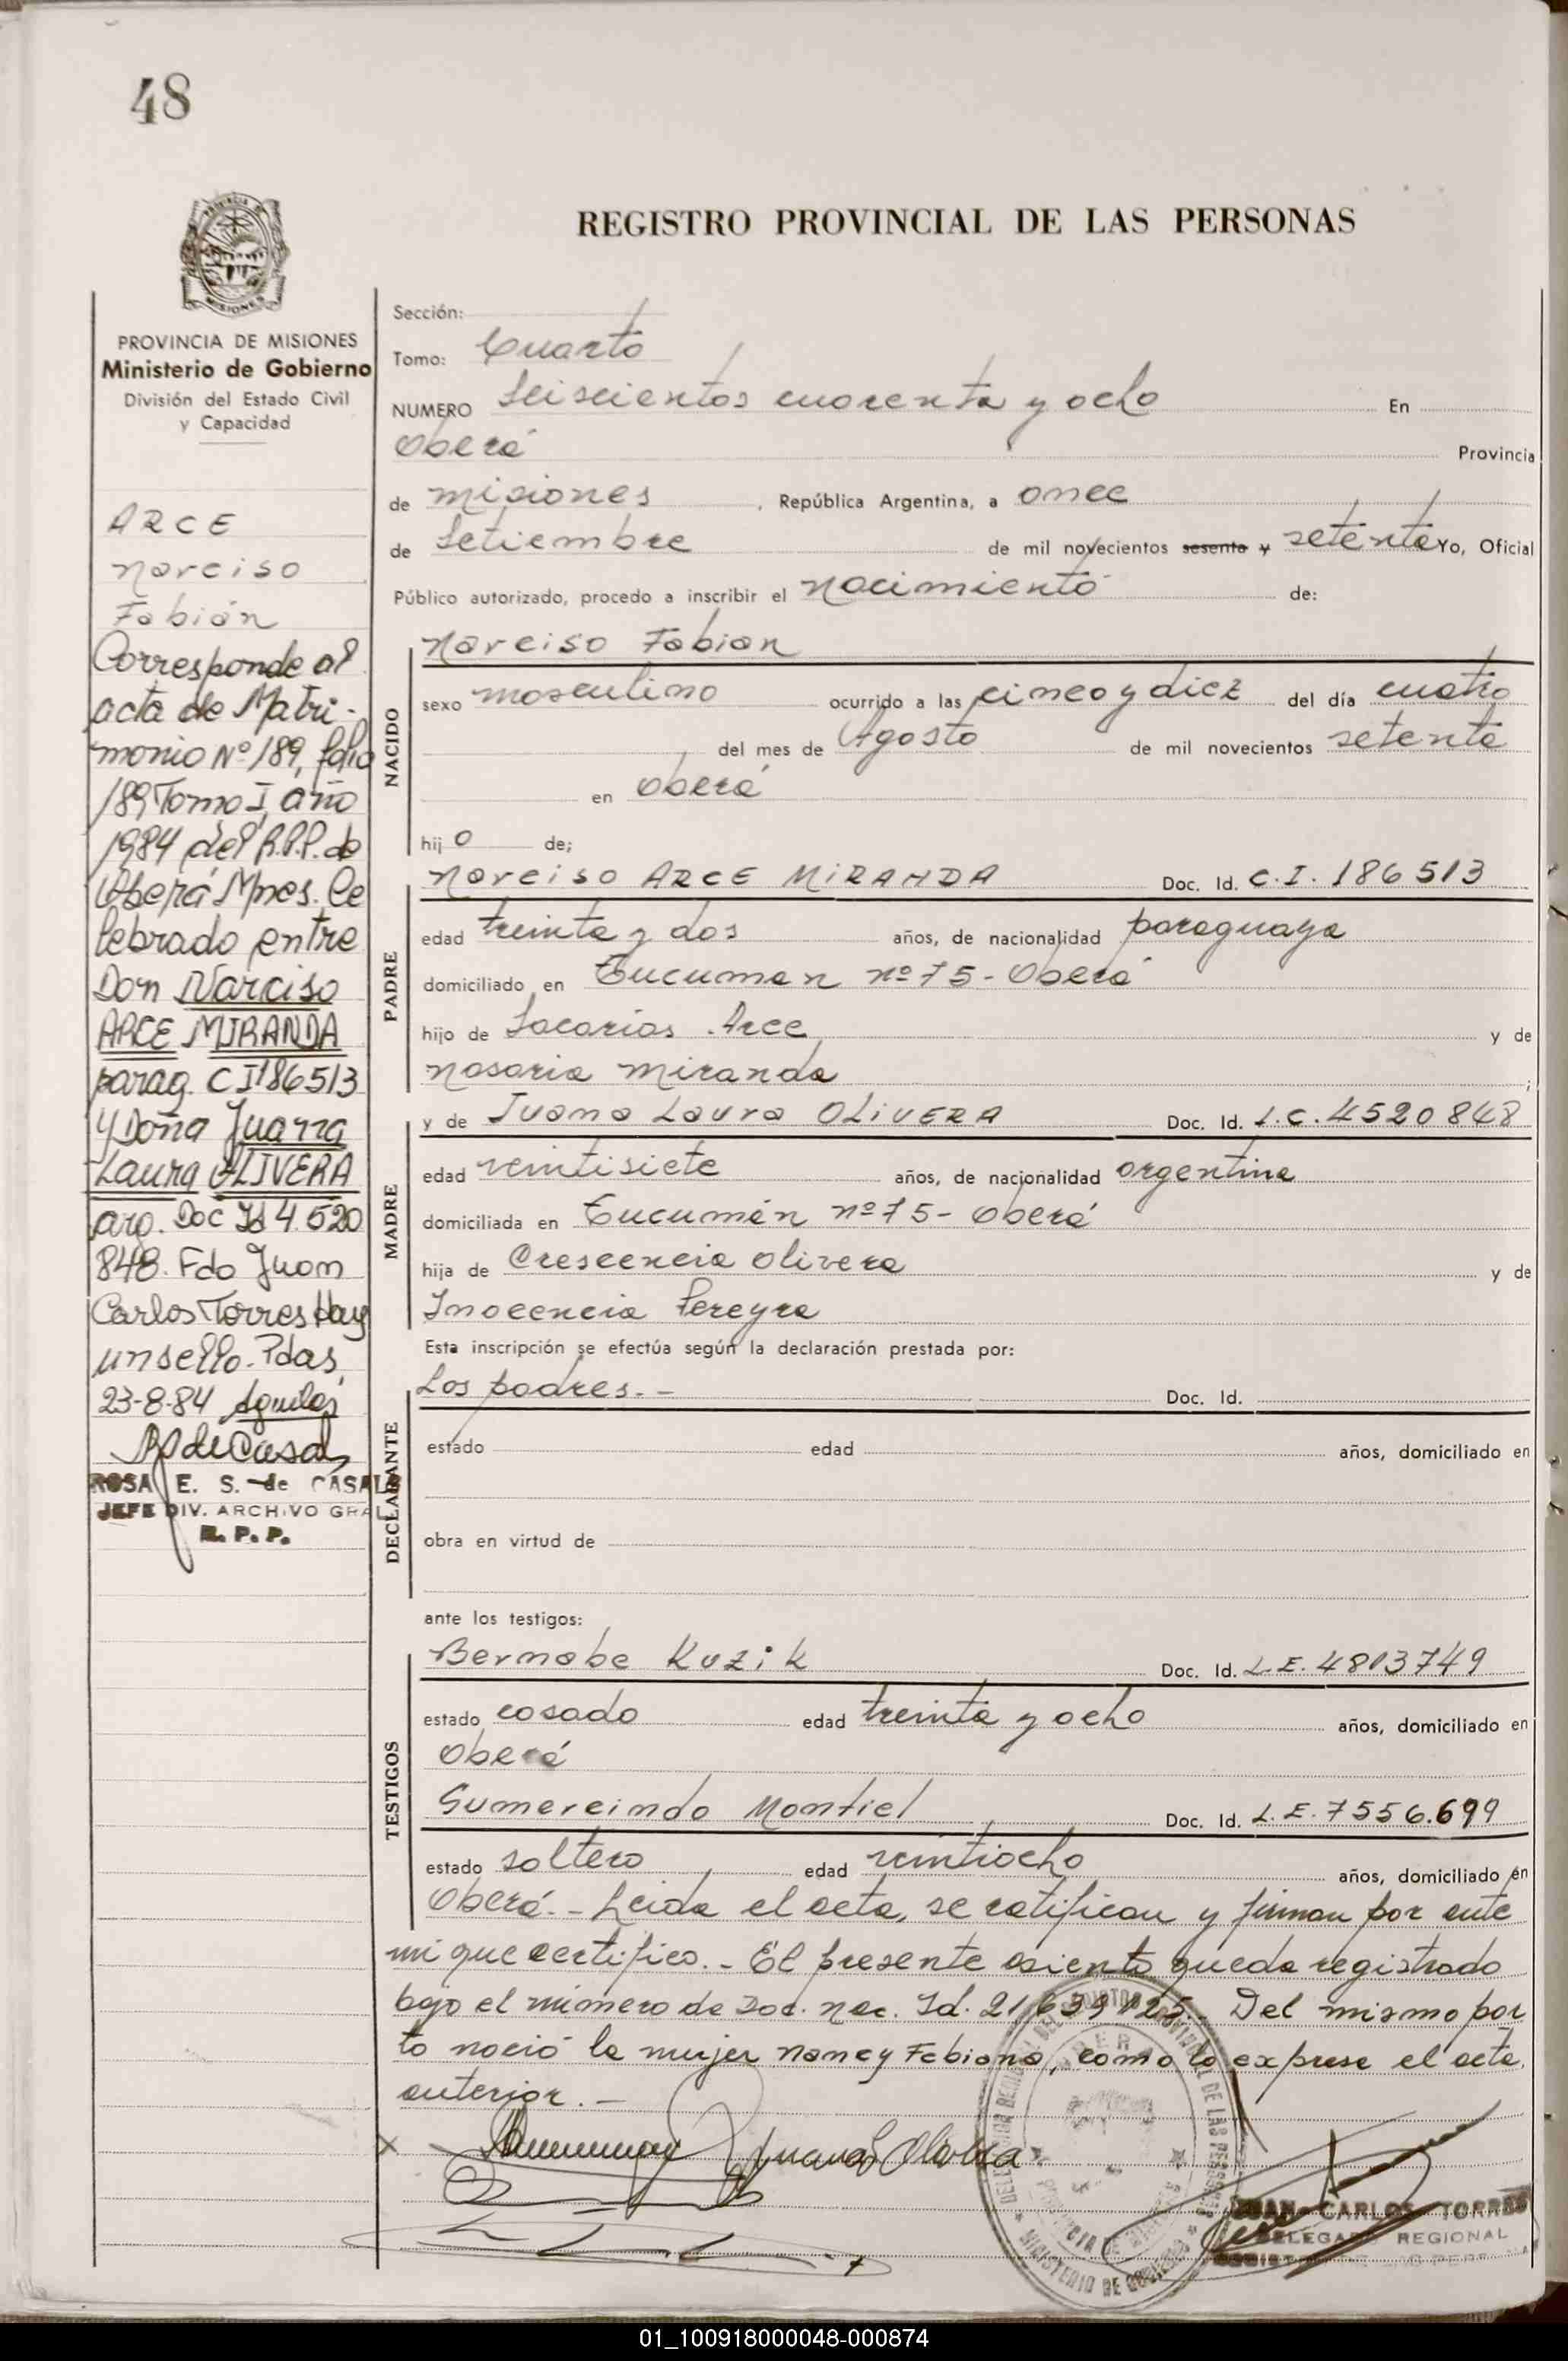 48
REGISTRO PROVINCIAL DE LAS PERSONAS
MISIONES
PROVINCIA DE MISIONES
Ministerio de Gobierno
División del Estado Civil
y Capacidad
ARCE
Narciso
Fabián
Corresponde al
acta de Matri-
monio Nº 189, folio
189 Tomo I, año
1984 del R.P.P. de
Oberá Mnes. Ce
lebrado entre
Don Narciso
ARCE MIRANDA
parag. C I 186513
y Doña Juana
Laura OLIVERA
arg. Doc Id 4.520
848. Fdo Juan
Carlos Torres Hay
un sello. Pdas,
23-8-84
ROSA E. S. de CASALS
JEFE DIV. ARCHIVO GRAL
R. P. P.
Sección:
Tomo: Cuarto
NUMERO Seiscientos cuarenta y ocho En
Oberá Provincia
de Misiones, República Argentina, a once
de Setiembre de mil novecientos sesenta y setenta Yo, Oficial
Público autorizado, procedo a inscribir el nacimiento de:
NACIDO
Narciso Fabian
sexo masculino ocurrido a las cinco y diez del día cuatro
del mes de Agosto de mil novecientos setenta
en Oberá
hijo de;
PADRE
Narciso ARCE MIRANDA Doc. Id. C.I. 186513
edad treinta y dos años, de nacionalidad paraguaya
domiciliado en Tucuman nº 75 - Oberá
hijo de Sacarias Arce y de
Nasaria Miranda ;
MADRE
y de Juana Laura OLIVERA Doc. Id. L.C. 4520848
edad veintisiete años, de nacionalidad argentina
domiciliada en Tucumán nº 75 - Oberá
hija de Crescencia Olivera y de
Inocencia Pereyra
Esta inscripción se efectúa según la declaración prestada por:
DECLARANTE
Los padres.- Doc. Id.
estado edad años, domiciliado en
obra en virtud de
ante los testigos:
TESTIGOS
Bernabe Kuzik Doc. Id. L.E. 4813749
estado casado edad treinta y ocho años, domiciliado en
Oberá
Gumercindo Montiel Doc. Id. L.E. 7556.699
estado soltero edad veintiocho años, domiciliado en
Oberá.- Leida el acta, se ratifican y firman por ante
mi que certifico.- El presente asiento queda registrado
bajo el número de Doc. nac. Id. 21.639.125. Del mismo par
to nació la mujer Nancy Fabiana, como lo exprese el acta
anterior.-
Juana L Olivera
JUAN CARLOS TORRES
DELEGADO REGIONAL
MINISTERIO DE GOBIERNO
01_100918000048-000874